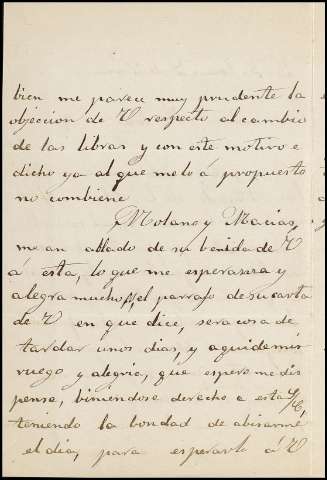 bien me parece muy prudente la
objeccion de V respecto al cambio
de las libras y con este motivo e
dicho ya al que meló á propuesto
no combiene
Molano y Macias,
me an ablado de su benida de V
á esta, lo que me esperasera y
alegra mucho, el parrafo de su carta
de V en que dice, sera cosa de
tardar unos dias, y aqui de mis
ruego y alegria, que espero me dis
pense, biniendose derecho a esta
teniendo la bondad de abisarme
el dia, para esperarle á V